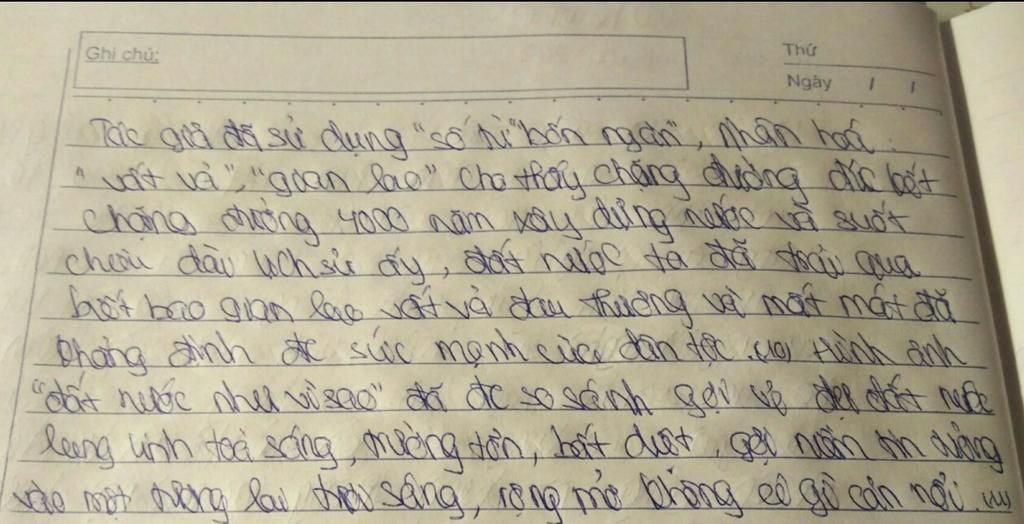 Ghi chú:
Thứ
Ngày / /
Tác giả đã sử dụng "số từ "bốn ngàn", nhân hoá
"vất vả", "gian lao" cho thấy chặng đường đặc biệt
chặng đường 4000 năm xây dựng nước và suốt
chiều dài lịch sử ấy, đất nước ta đã trải qua
biết bao gian lao vất vả đau thương và mất mát đã
khẳng định đc sức mạnh của dân tộc. Hình ảnh
"đất nước như vì sao" đã đc so sánh gợi vẻ đẹp đất nước
lung linh toả sáng, trường tồn, bất diệt, gợi niềm tin
vào một tương lai sáng, rộng mở không có gì cản nổi.